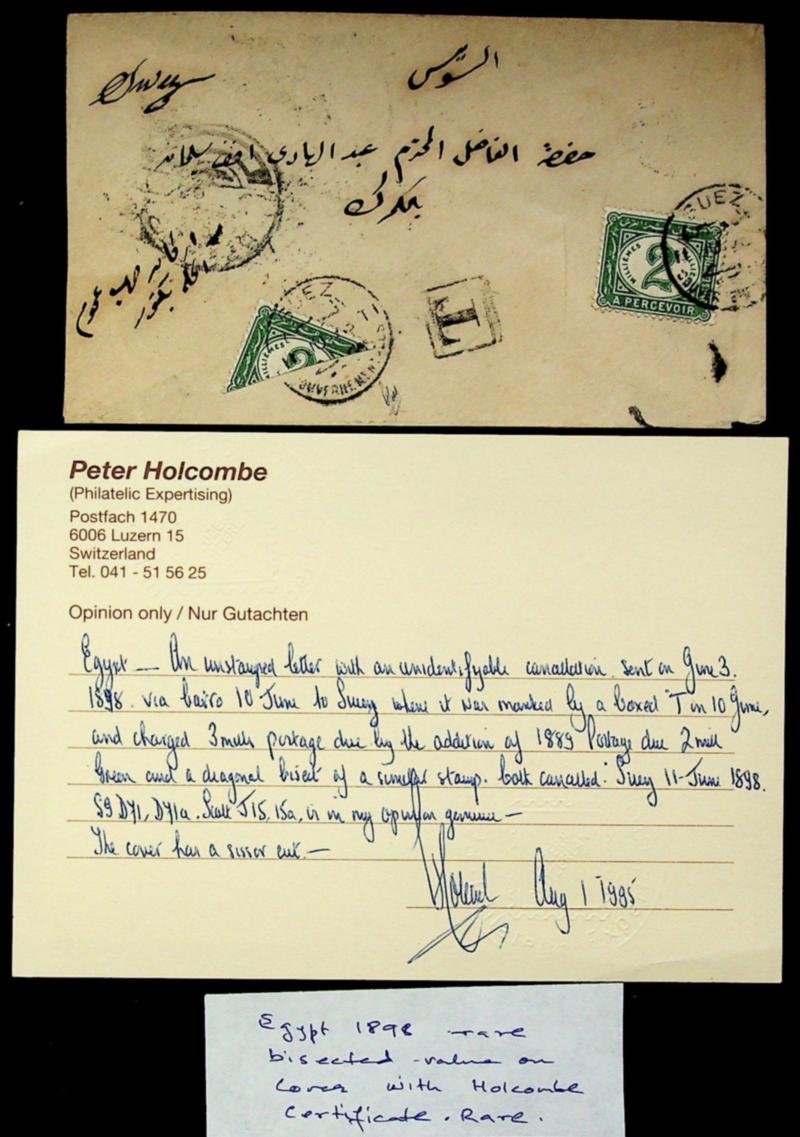 Suez
السويس
حضرة الفاضل المحترم عبد الهادى افندى سليمان
بالجمرك
SUEZ
MILLIEMES
2
A PERCEVOIR
SUEZ
2
T
Peter Holcombe
(Philatelic Expertising)
Postfach 1470
6006 Luzern 15
Switzerland
Tel. 041 - 51 56 25
Opinion only / Nur Gutachten
Egypt — An unstamped letter with an unidentifyable cancellation. sent on June 3.
1898. via Cairo 10 June to Suez where it was marked by a boxed "T" on 10 June,
and charged 3 mills postage due by the addition of 1889 Postage due 2 mill
Green and a diagonal bisect of a similar stamp. both cancelled: Suez 11-June 1898.
SG D71, D71a. Scott J15, 15a, is in my opinion genuine —
The cover has a sissor cut. —
Aug 1 1995
Egypt 1898 rare
bisected value on
cover with Holcombe
Certificate. Rare.